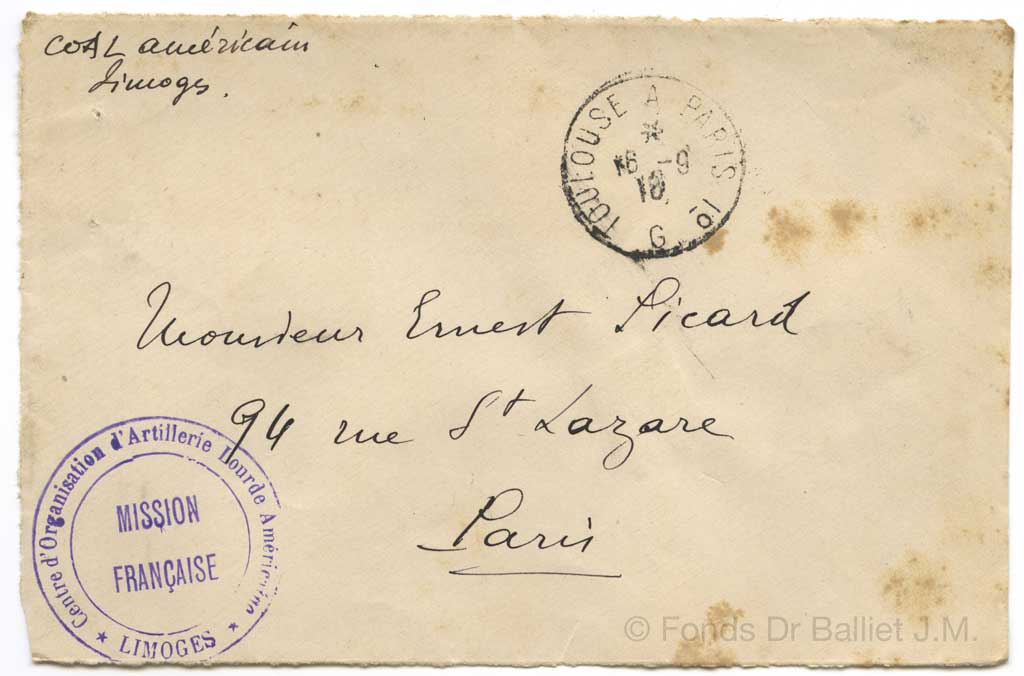 COAL américain
Limoges.
TOULOUSE A PARIS 1º
16 -9
18
G
Monsieur Ernest Sicard
94 rue St Lazare
Paris
Centre d'Organisation d'Artillerie Lourde Américaine
MISSION
FRANÇAISE
* LIMOGES *
© Fonds Dr Balliet J.M.